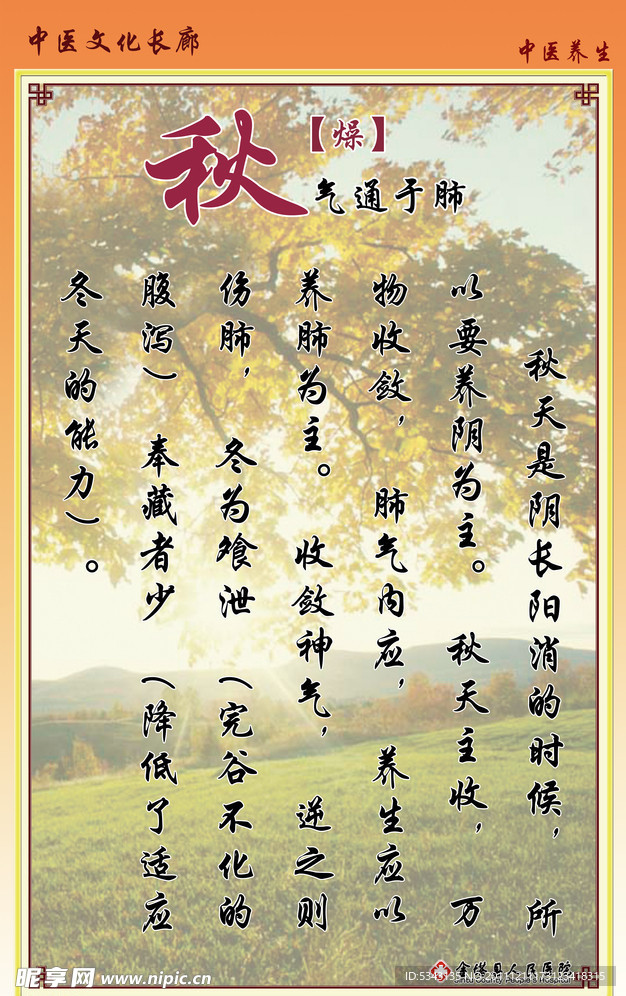 中医文化长廊
中医养生
秋
【燥】
气通于肺
秋天是阴长阳消的时候，所
以要养阴为主。秋天主收，万
物收敛，肺气内应，养生应以
养肺为主。收敛神气，逆之则
伤肺，冬为飧泄（完谷不化的
腹泻）奉藏者少（降低了适应
冬天的能力）。
人民医院
昵享网 www.nipic.cn